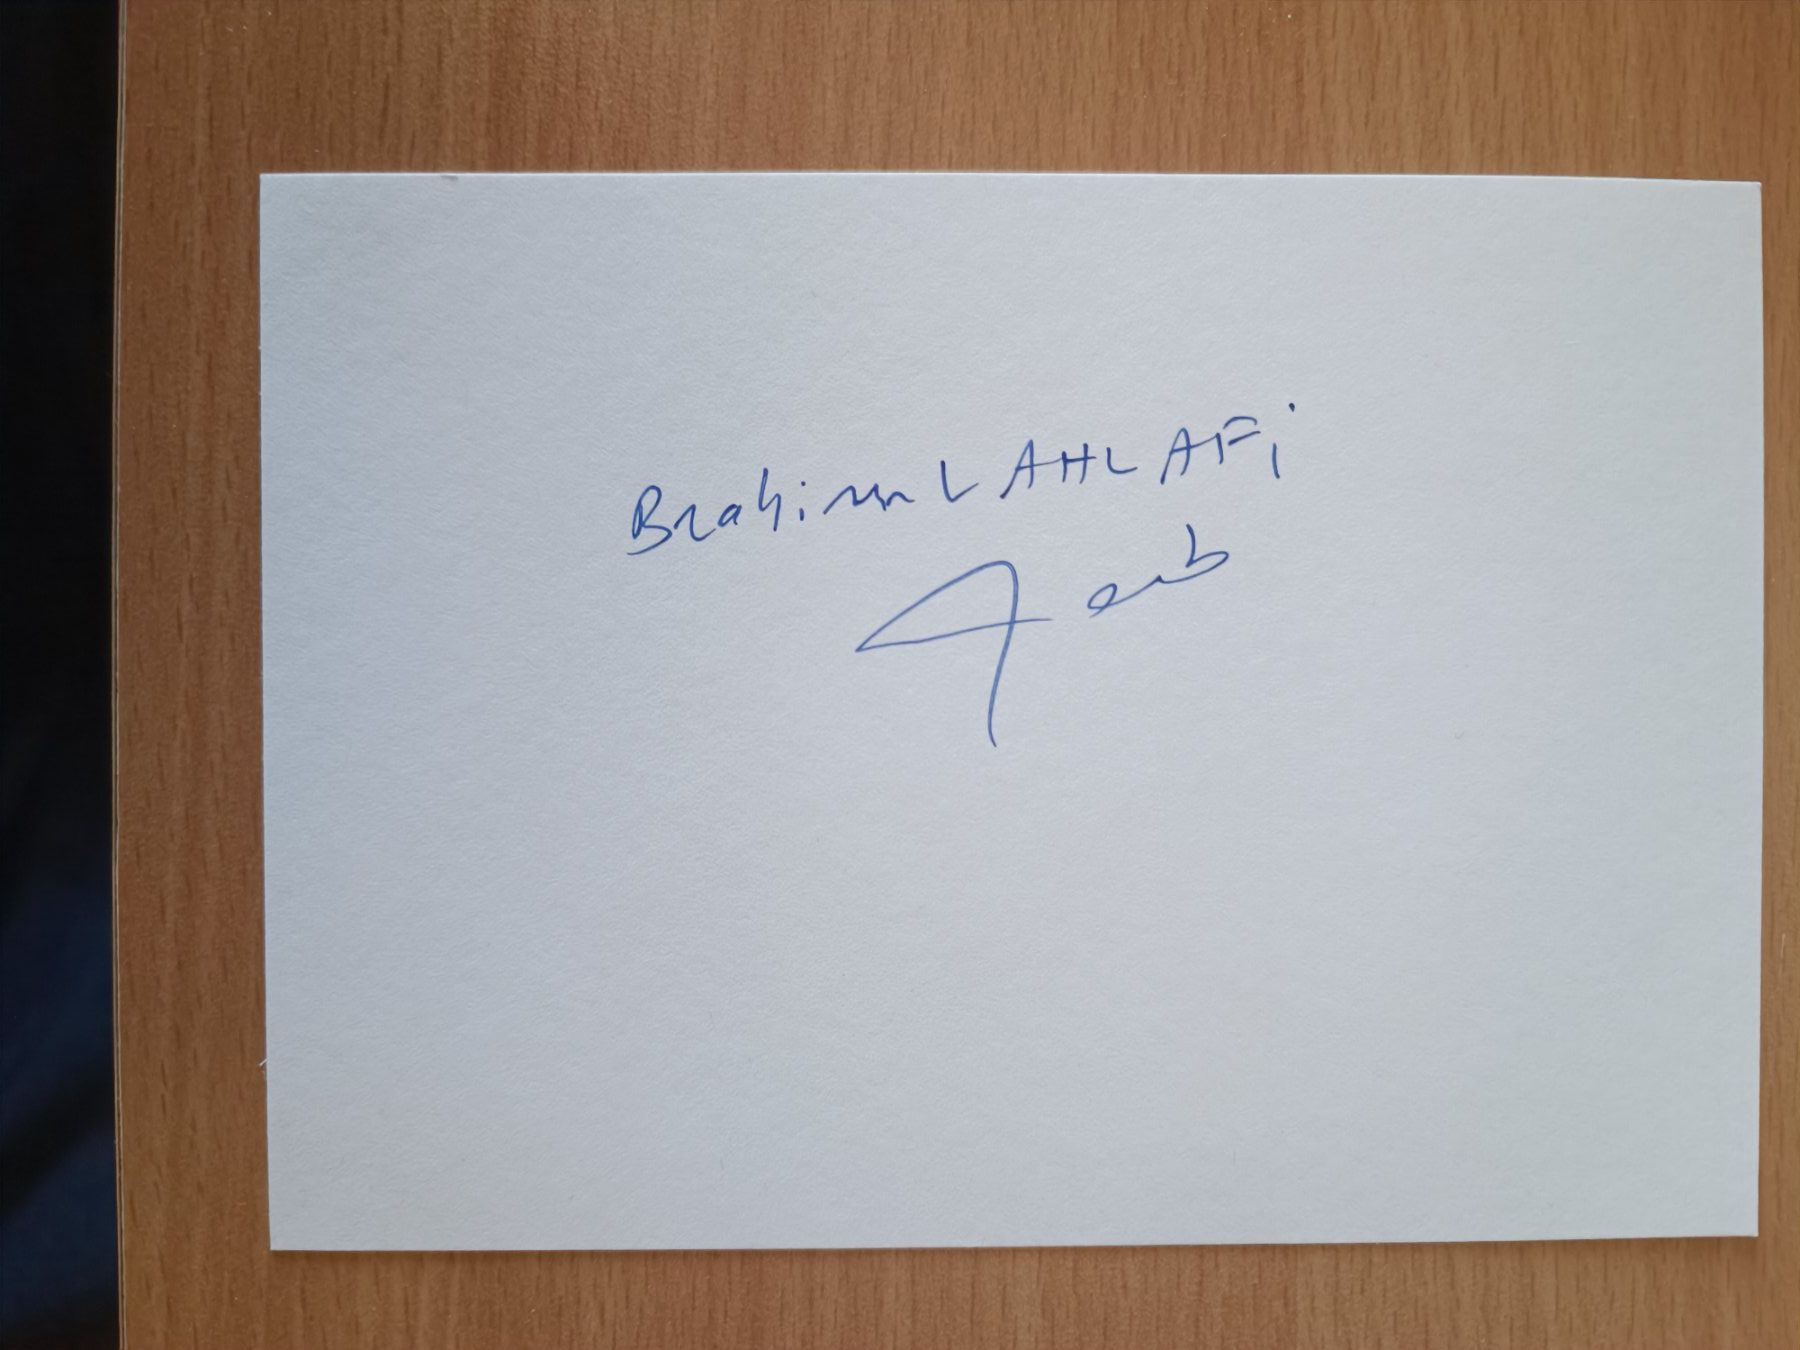 Brahim LAHLAFi